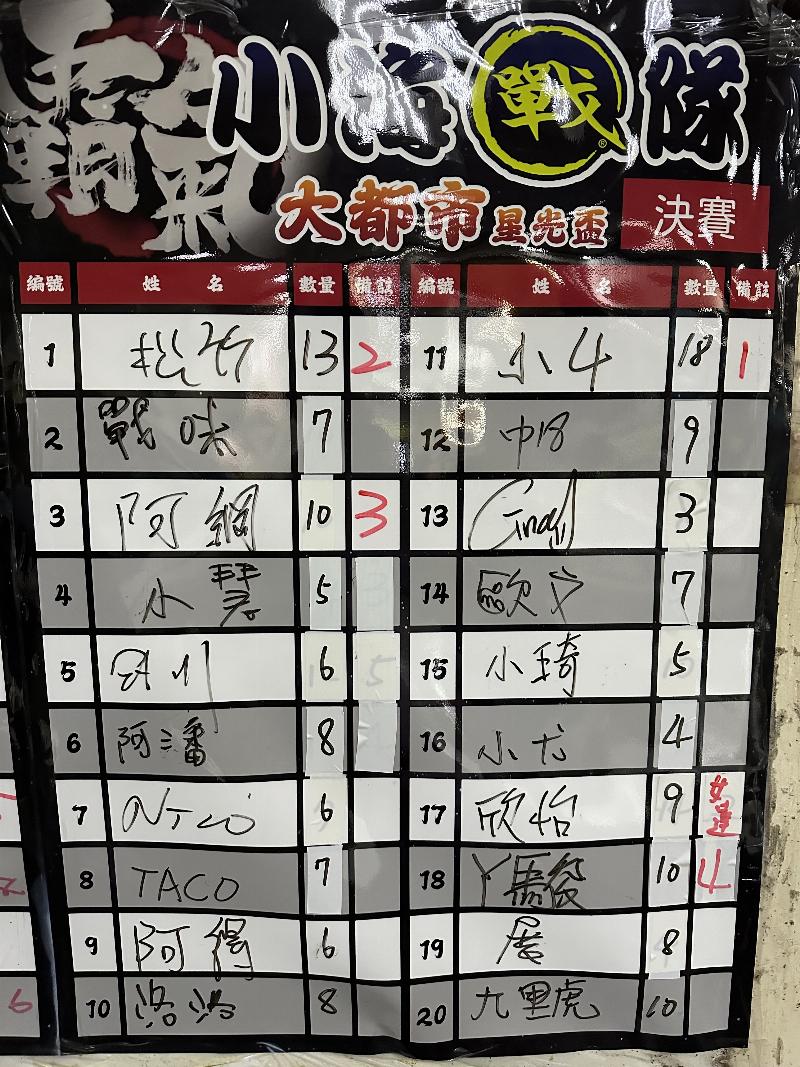 霸氣
小海戰隊
®
大都市 星光盃 決賽
編號 姓名 數量 備註 編號 姓名 數量 備註
1 松竹 13 2 11 小4 18 1
2 戰味 7 12 中18 9
3 阿網 10 3 13 3
4 小琴 5 14 歐文 7
5 6 15 小琦 5
6 阿潘 8 16 小尤 4
7 6 17 欣怡 9
8 TACO 7 18 丫馬俊 10 4
9 阿得 6 19 展 8
10 洛洛 8 20 九里虎 10
6